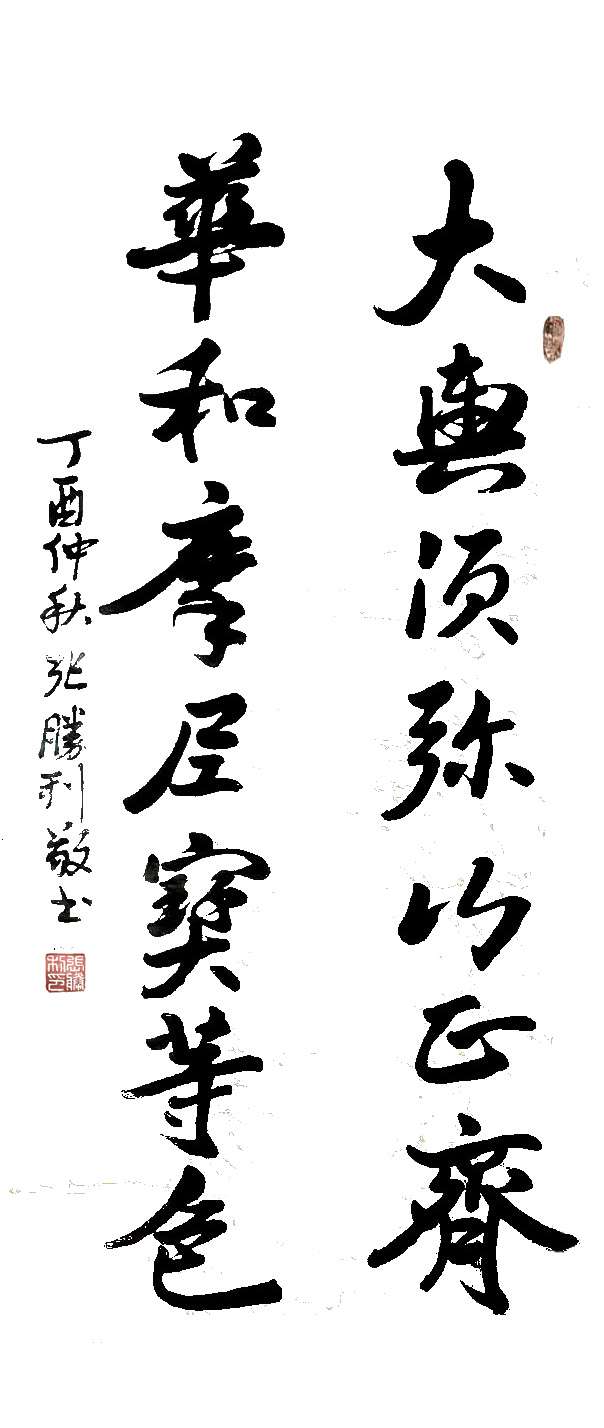 大與须弥山正齊
華和摩尼寶等色
丁酉仲秋 张勝利敬书
張勝利印